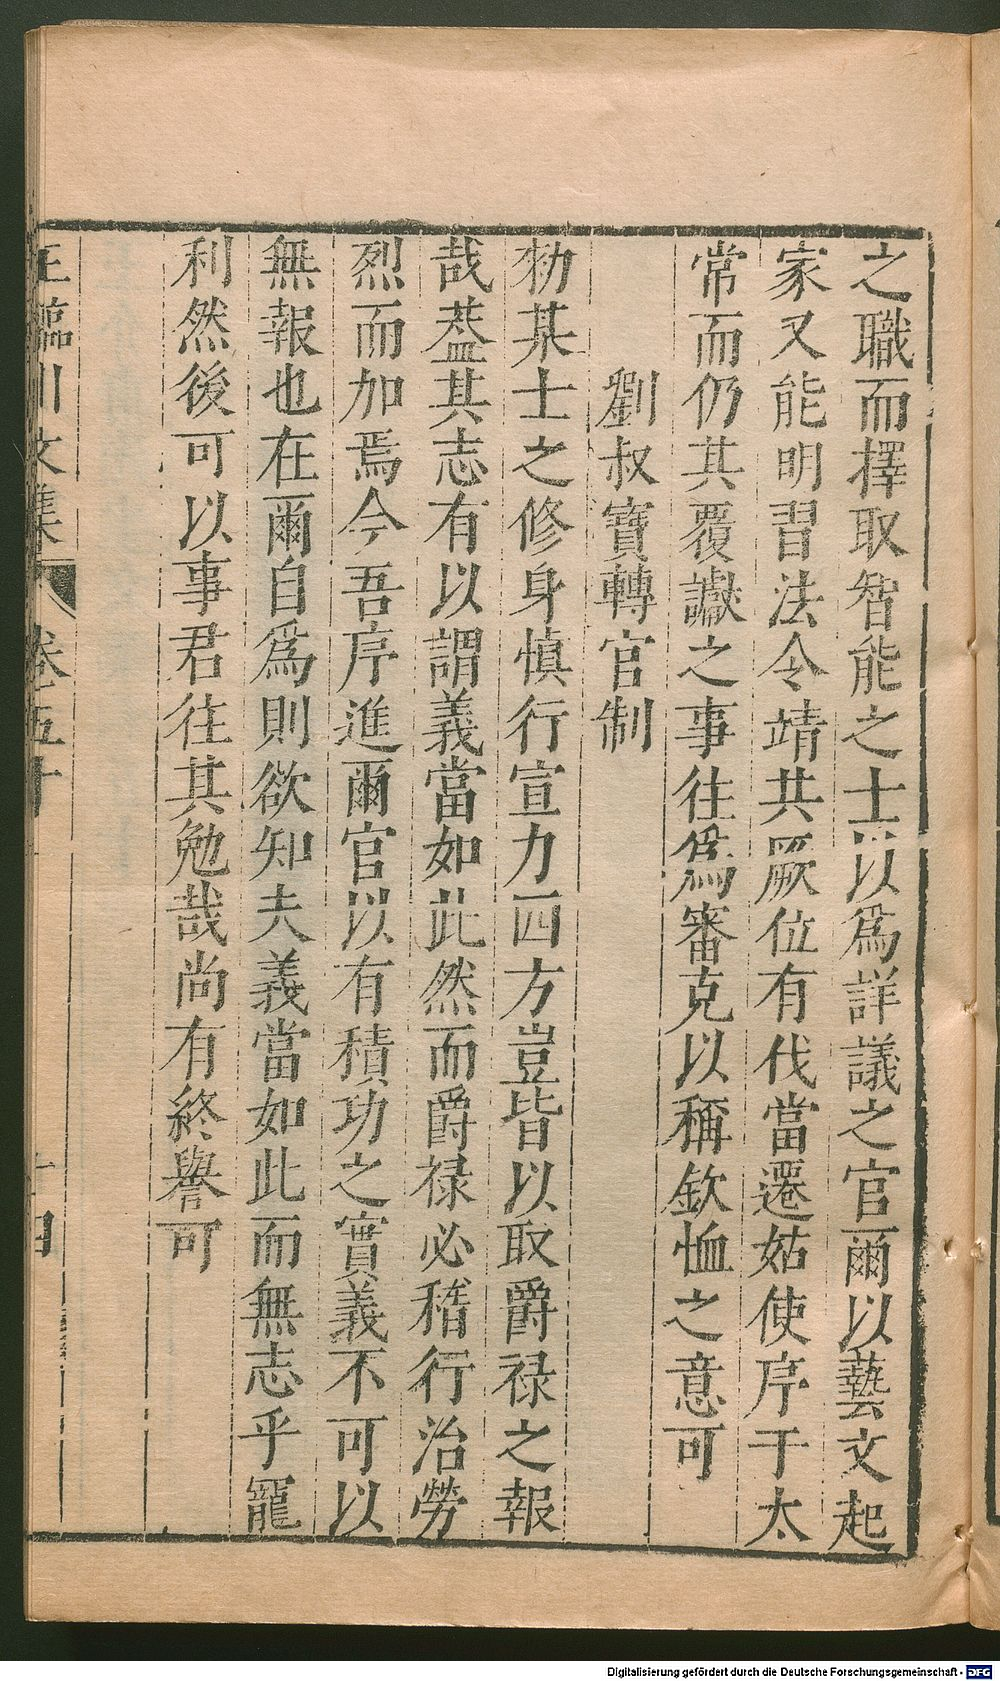 之職而擇取智能之士以爲詳議之官爾以藝文起
家又能明習法令靖共厥位有伐當遷姑使序于太
常而仍其覆讞之事往爲審克以稱欽恤之意可
劉叔寶轉官制
勑某士之修身慎行宣力四方豈皆以取爵禄之報
哉葢其志有以謂義當如此然而爵禄必稽行治勞
烈而加焉今吾序進爾官以有積功之實義不可以
無報也在爾自爲則欲知夫義當如此而無志乎寵
利然後可以事君往其勉哉尚有終譽可
王臨川文集
卷五十
十四
Digitalisierung gefördert durch die Deutsche Forschungsgemeinschaft - DFG